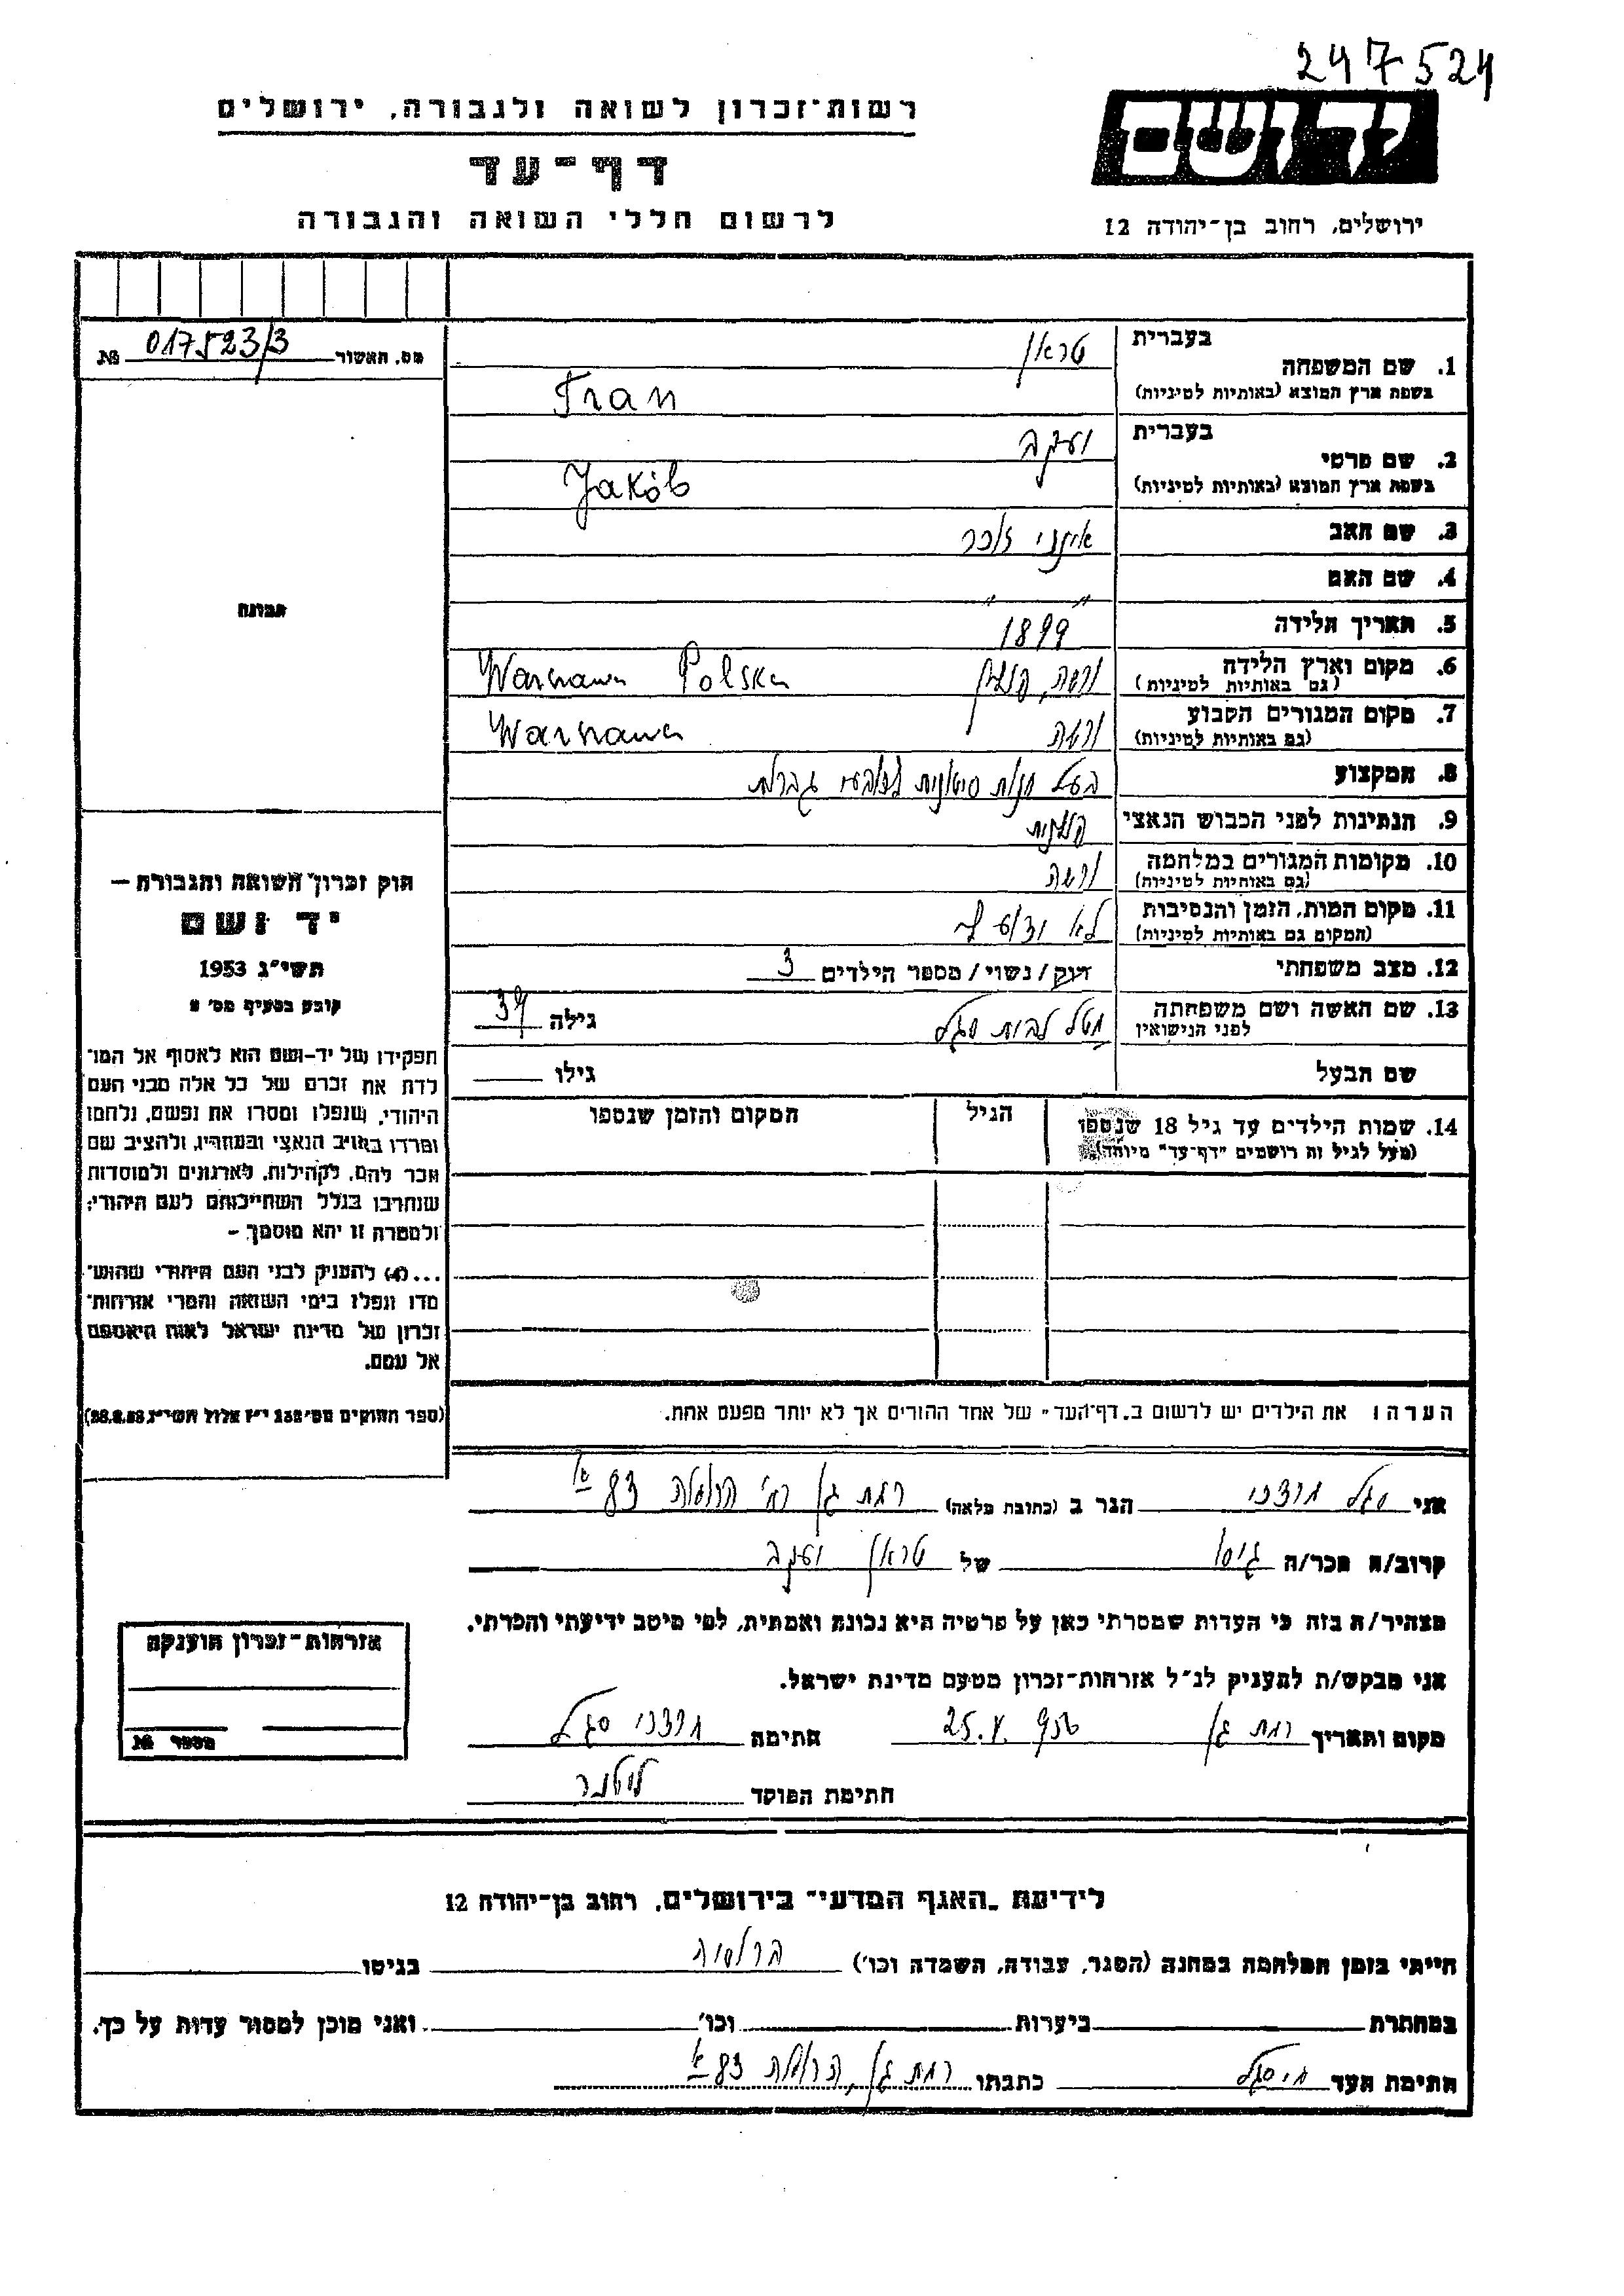 247524
רשות-זכרון לשואה ולגבורה, ירושלים
יד ושם
דף-עד
לרשום חללי השואה והגבורה
ירושלים, רחוב בן-יהודה 12
מס. האשור 017523/3 №
בעברית טראן
1. שם המשפחה
בשפת ארץ המוצא (באותיות לטיניות) Tran
בעברית יעקב
2. שם פרטי
בשפת ארץ המוצא (באותיות לטיניות) Jakób
3. שם האב אינני זוכר
4. שם האם " "
5. תאריך הלידה 1899
6. מקום וארץ הלידה ורשה, פולין Warszawa Polska
(גם באותיות לטיניות)
7. מקום המגורים הקבוע ורשה Warszawa
(גם באותיות לטיניות)
8. המקצוע בעל חנות סיטונית
9. הנתינות לפני הכבוש הנאצי פולנית
10. מקומות המגורים במלחמה ורשה
(גם באותיות לטיניות)
11. מקום המות, הזמן והנסיבות לא ידוע לי
(המקום גם באותיות לטיניות)
12. מצב משפחתי רווק/נשוי/ מספר הילדים 3
13. שם האשה ושם משפחתה לבית סגל גילה 39
לפני הנישואין
שם הבעל גילו
14. שמות הילדים עד גיל 18 שנספו הגיל המקום והזמן שנספו
(מעל לגיל זה רושמים "דף-עד" מיוחד)
תמונה
חוק זכרון השואה והגבורה –
יד ושם
תשי"ג 1953
קובע בסעיף מס' 2
תפקידו של יד-ושם הוא לאסוף אל המו־
לדת את זכרם של כל אלה מבני העם
היהודי, שנפלו ומסרו את נפשם, נלחמו
ומרדו באויב הנאצי ובעוזריו, ולהציב שם
וזכר להם, לקהילות, לארגונים ולמוסדות
שנחרבו בגלל השתייכותם לעם היהודי;
ולמטרה זו יהא מוסמך –
...(4) להעניק לבני העם היהודי שהוש־
מדו ונפלו בימי השואה והמרי אזרחות־
זכרון של מדינת ישראל לאות היאספם
אל עמם.
(ספר החוקים מס' 132 י"ז אלול תשי"ג 28.8.53)
הערה: את הילדים יש לרשום ב"דף-העד" של אחד ההורים אך לא יותר מפעם אחת.
אני סגל מרדכי הגר ב (כתובת מלאה) רמת גן רח' הרואה 83 א
קרוב/ה מכר/ה גיסו של טראן יעקב
מצהיר/ה בזה כי העדות שמסרתי כאן על פרטיה היא נכונה ואמתית, לפי מיטב ידיעתי והכרתי.
אני מבקש/ת להעניק לנ"ל אזרחות-זכרון מטעם מדינת ישראל.
מקום ותאריך רמת גן 25.V. חתימה מרדכי סגל
חתימת הפוקד
אזרחות-זכרון הוענקה
מספר №
לידיעת "האגף המדעי" בירושלים, רחוב בן-יהודה 12
הייתי בזמן המלחמה במחנה (הסגר, עבודה, השמדה וכו') בגיטו
במחתרת ביערות וכו' ואני מוכן למסור עדות על כך.
חתימת העד מ סגל כתבתו רמת גן, הרואה 83 א